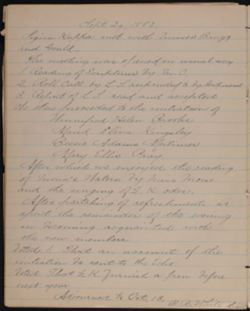 Sept. 29, 1883.
Sigma Kappa met with Minnie Bragg
and Gould.
The meeting was opened in usual way
1 Reading of Scriptures by
2 Roll Call by
3. Report of L. L. read and accepted
We then proceeded to the initiation of
Winnifred Helen Brooks
Maud Elma Kingsley
Bessie Adams Mortimer
Mary Ellis Pray
After which we enjoyed the reading
of
and the singing of Σ. K. odes.
After partaking of refreshments we
spent the remainder of the evening
in becoming acquainted with
the new members.
Voted: 1. That an account of the
initiation be sent to the Echo
Voted. That Σ. K. furnish a
next year.
Adjourned to Oct. 13.